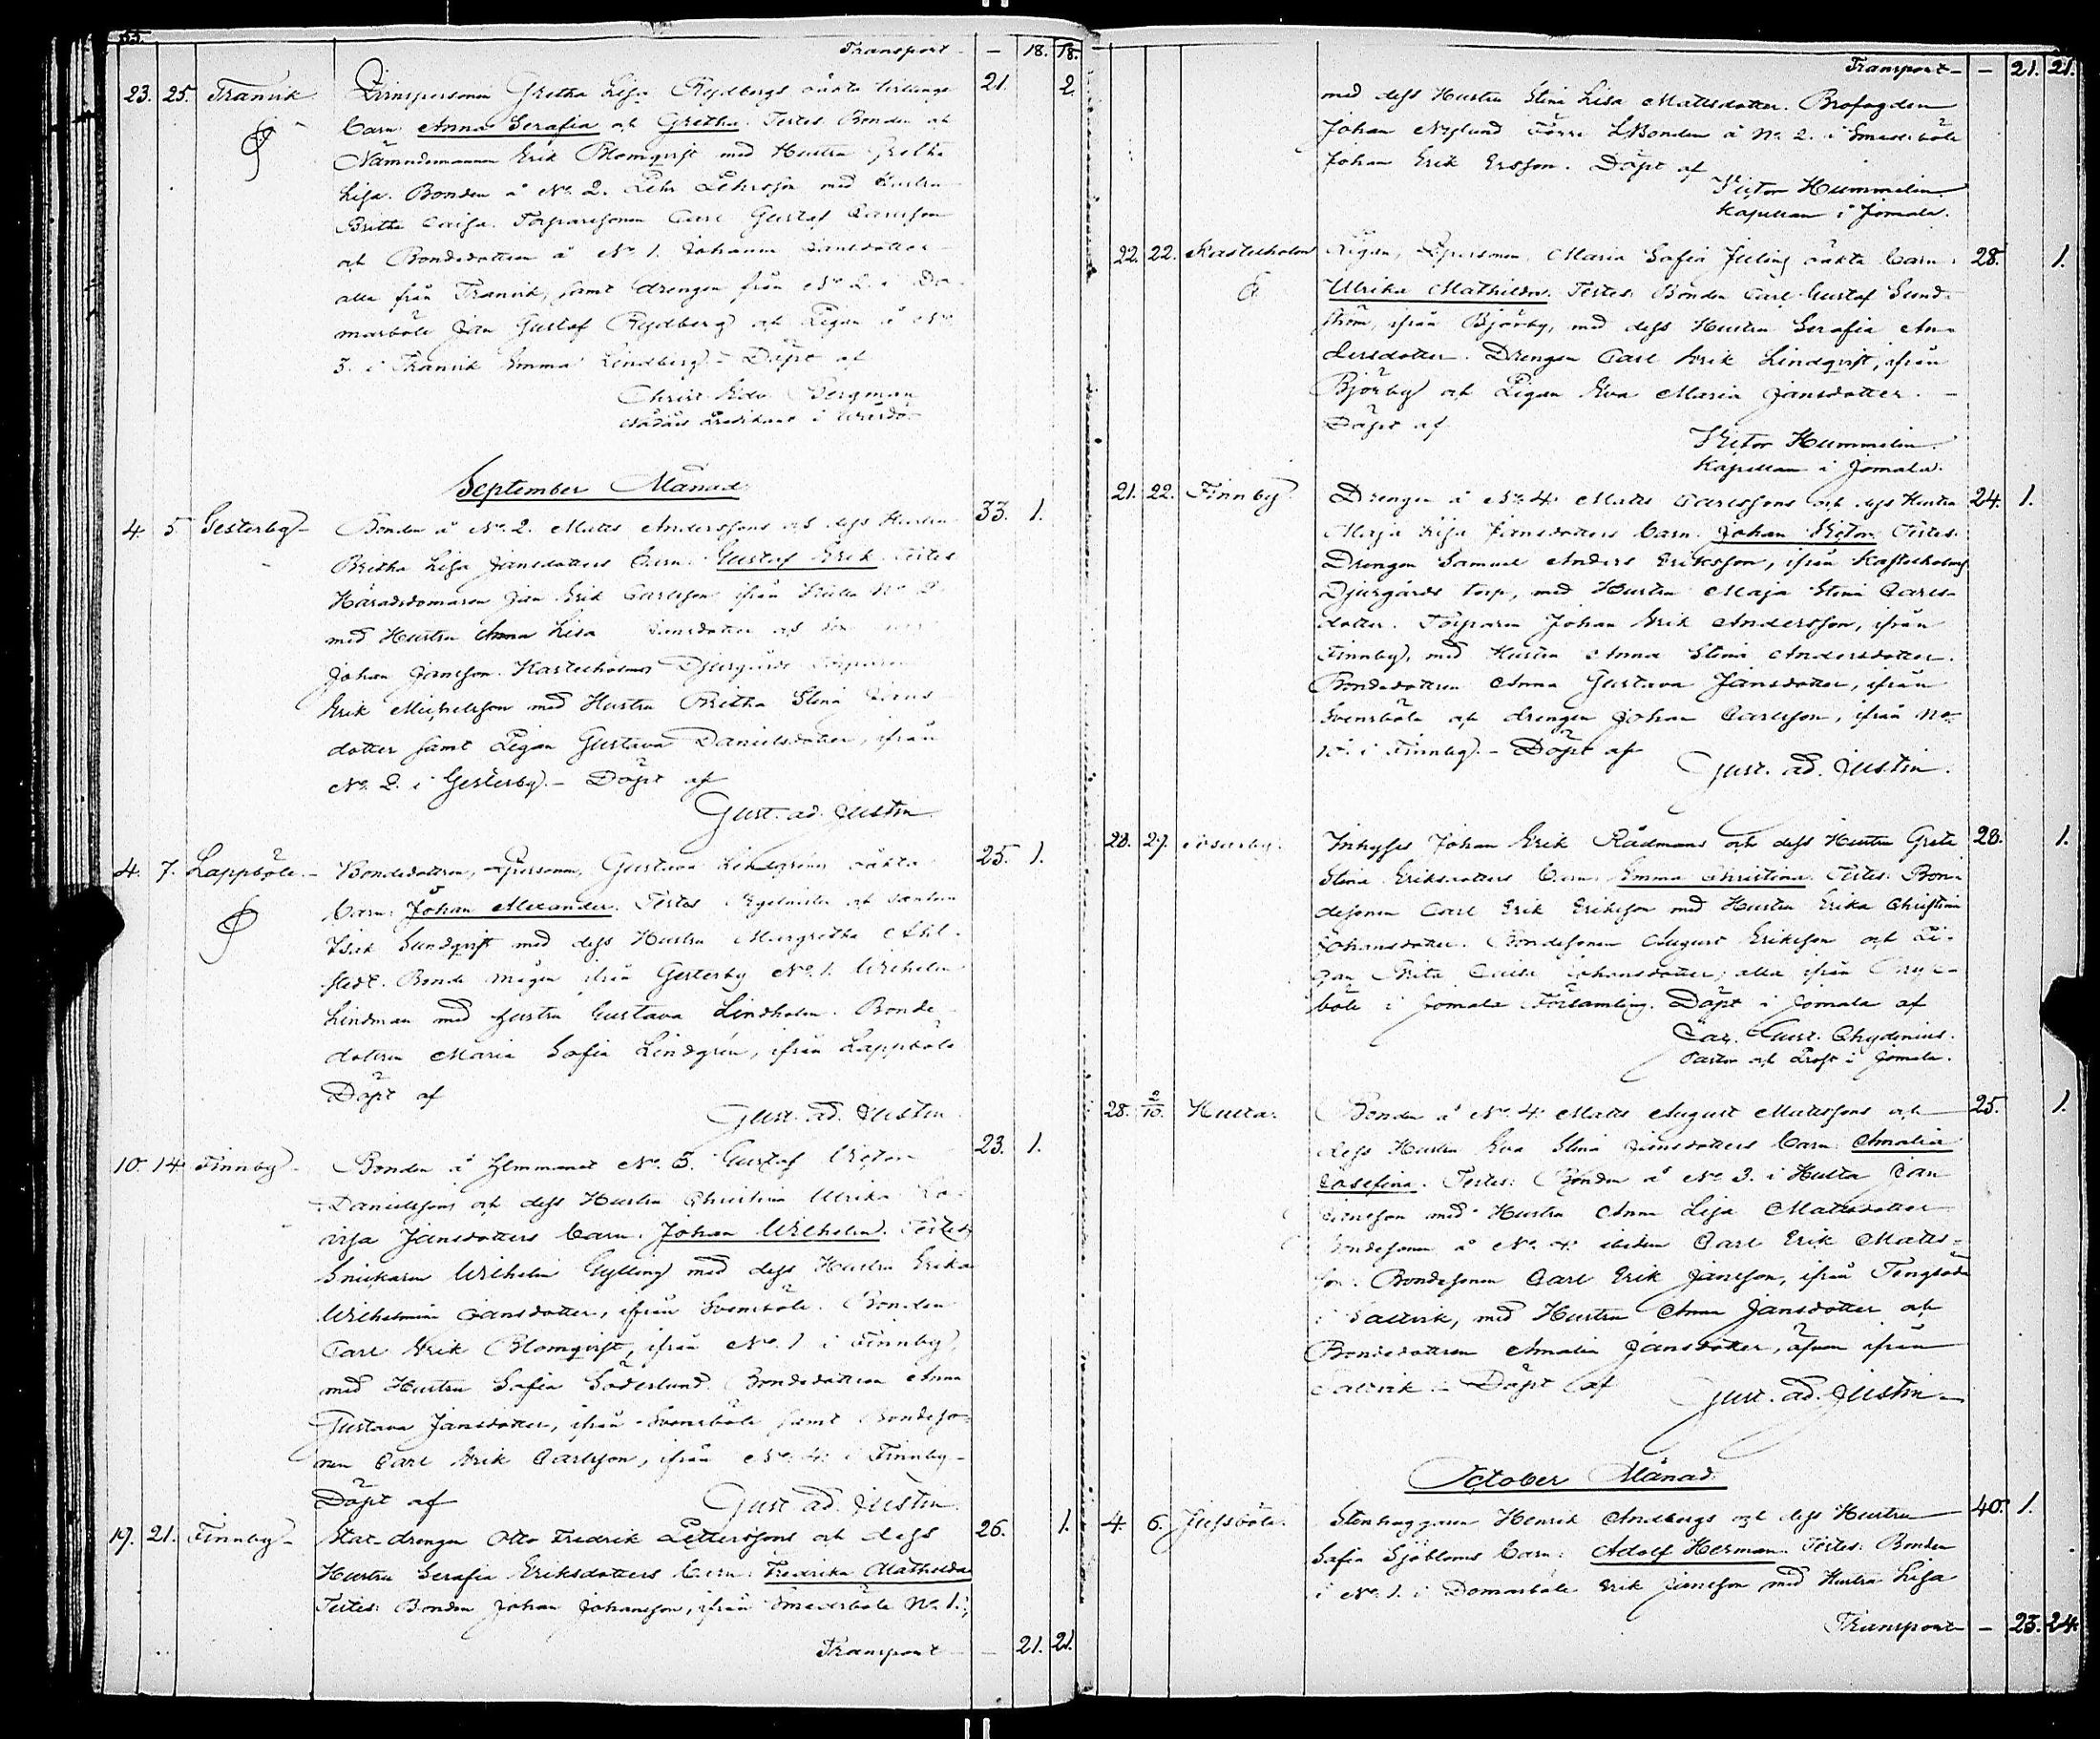 Transport - — 18. 18.
23. 25. Tranvik Qvinspersonen Gretha Lisa Rydbergs oäkta tvillinge 21. 2.
barn: Anna Serafia och Gretha. Testes: Bonden och
Nämndemannen Erik Blomqvist med Hustru Gretha
Lisa. Bonden å No 2. Pehr Pehrsson med Hustru
Britha Caisa. Torparesonen Carl Gustaf Carlsson
och Bondedottren å No 1. Johanna Jansdotter
alla från Tranvik, samt drengen från No 2. i Do-
marböle Jan Gustaf Rydberg och Pigan å No
3. i Tranvik Emma Lindberg. - Döpt af
Christ. Edv. Bergman
Nådårs Predikant i Wårdö
September Månad
4. 5. Gesterby - Bonden å No 2. Matts Anderssons och dess Hustru 33. 1.
Britha Lisa Jansdotters barn: Gustaf Erik. Testes
Häradsdomaren Jan Erik Carlsson ifrån Hulta No 2.
med Hustru Anna Lisa Jansdotter och
Johan Jansson. Kastelholms Djurgårds Torparen
Erik Michelsson med Hustru Britha Stina Jans
dotter samt Pigan Gustava Danielsdotter, ifrån
No 2. i Gesterby. - Döpt af
Gust. ad. Justin.
4. 7. Lappböle. - Bondedottren, Qpersonen, Gustava Lindgréns oäkta 25. 1.
barn: Johan Alexander. Testes
Isak Sundqvist med dess Hustru Margretha Ahl-
stedt. Bonde mågen ifrån Gesterby No 1. Wilhelm
Lindman med Hustru Gustava Lindholm. Bonde
dottren Maria Sofia Lindgrén, ifrån Lappböle
Döpt af
Gust. ad. Justin.
10. 14. Finnby - Bonden å Hemmanet No 5. Gustaf Victor 23. 1.
Danielssons och dess Hustru Christina Ulrika Lo-
visa Jansdotters barn: Johan Wilhelm. Testes
Snickaren Wilhelm Gylling med dess Hustru Erika
Wilhelmina Jansdotter, ifrån Svensböle. Bonden
Carl Erik Blomqvist, ifrån No 1 i Finnby,
med Hustru Sofia Söderlund. Bondedottren Anna
Gustava Jansdotter, ifrån Svensböle samt Bondeso-
nen Carl Erik Carlsson, ifrån No 4. i Finnby -
Döpt af Gust. ad. Justin.
19. 21. Finnby - Stat-drengen Otto Fredrik Petterssons och dess 26. 1.
Hustru Serafia Eriksdotters barn: Fredrika Mathilda
Testes: Bonden Johan Johansson, ifrån Smedsböle No 1.,
Transport - — 21. 21.
Transport - — 21. 21.
med dess Hustru Stina Lisa Mattsdotter. Brofogden
Johan Nyslund Förre LBonden å No 2. i Smedsböle
Johan Erik Ersson. Döpt af
Victor Hummelin
Kapellan i Jomala.
22. 22. Kastelholm Pigan, Qpersonen, Maria Sofia Juling oäkta barn: 28. 1.
Ulrika Mathilda. Testes: Bonden Carl Gustaf Sund-
ström, ifrån Björby, med dess Hustru Serafia An-
dersdotter. Drengen Carl Erik Lindqvist, ifrån
Björby och Pigan Eva Maria Jansdotter. -
Döpt af
Victor Hummelin
Kapellan i Jomala.
21. 22. Finnby. Drengen å No 4. Matts Carlssons och dess Hustru 24. 1.
Maja Lisa Jansdotters barn: Johan Victor. Testes:
Drengen Samuel Anders Eriksson, ifrån Kastelholms
Djurgårds torp, med Hustru Maja Stina Carls-
dotter. Torparen Johan Erik Andersson, ifrån
Finnby, med Hustru Anna Stina Andersdotter.
Bondedottren Anna Gustava Jansdotter, ifrån
Svensböle och drengen Johan Carlsson, ifrån No
i Finnby. - Döpt af
Gust. ad. Justin.
23. 27. Inhyses Johan Erik Rådmans och dess Hustru Greta 28. 1.
Stina Eriksdotters barn: Emma Christina. Testes: Bon-
desonen Carl Erik Eriksson med Hustru Erika Christina
Johansdotter. Bondesonen August Eriksson och Pi-
gan Brita Caisa Johansdotter; alla ifrån
böle i Jomala Församling. Döpt i Jomala af
Car. Gust. Chydenius.
Pastor och Prost i Jomala.
28. 2/10. Hulta. Bonden å No 4. Matts August Mattssons och 25. 1.
dess Hustru Eva Stina Jansdotters barn: Amalia
Josefina. Testes: Bonden å No 3. i Hulta Jan
Jansson med Hustru Anna Lisa Mattsdotter
Bondesonen å No 4. ibidem Carl Erik Matts-
son. Bondesonen Carl Erik Jansson, ifrån Tengsöda
i Saltvik, med Hustru Anna Jansdotter och
Bondedottren Amalia Jansdotter, äfven ifrån
Saltvik - Döpt af Gust. ad. Justin -
October Månad.
4. 6. Jussböle. Stenhuggaren Henrik Andbergs och dess Hustru 40. 1.
Sofia Sjöbloms barn: Adolf Herman. Testes: Bonden
å No 1. i Domarböle Erik Jansson med Hustru Lisa
Transport - — 23. 24.